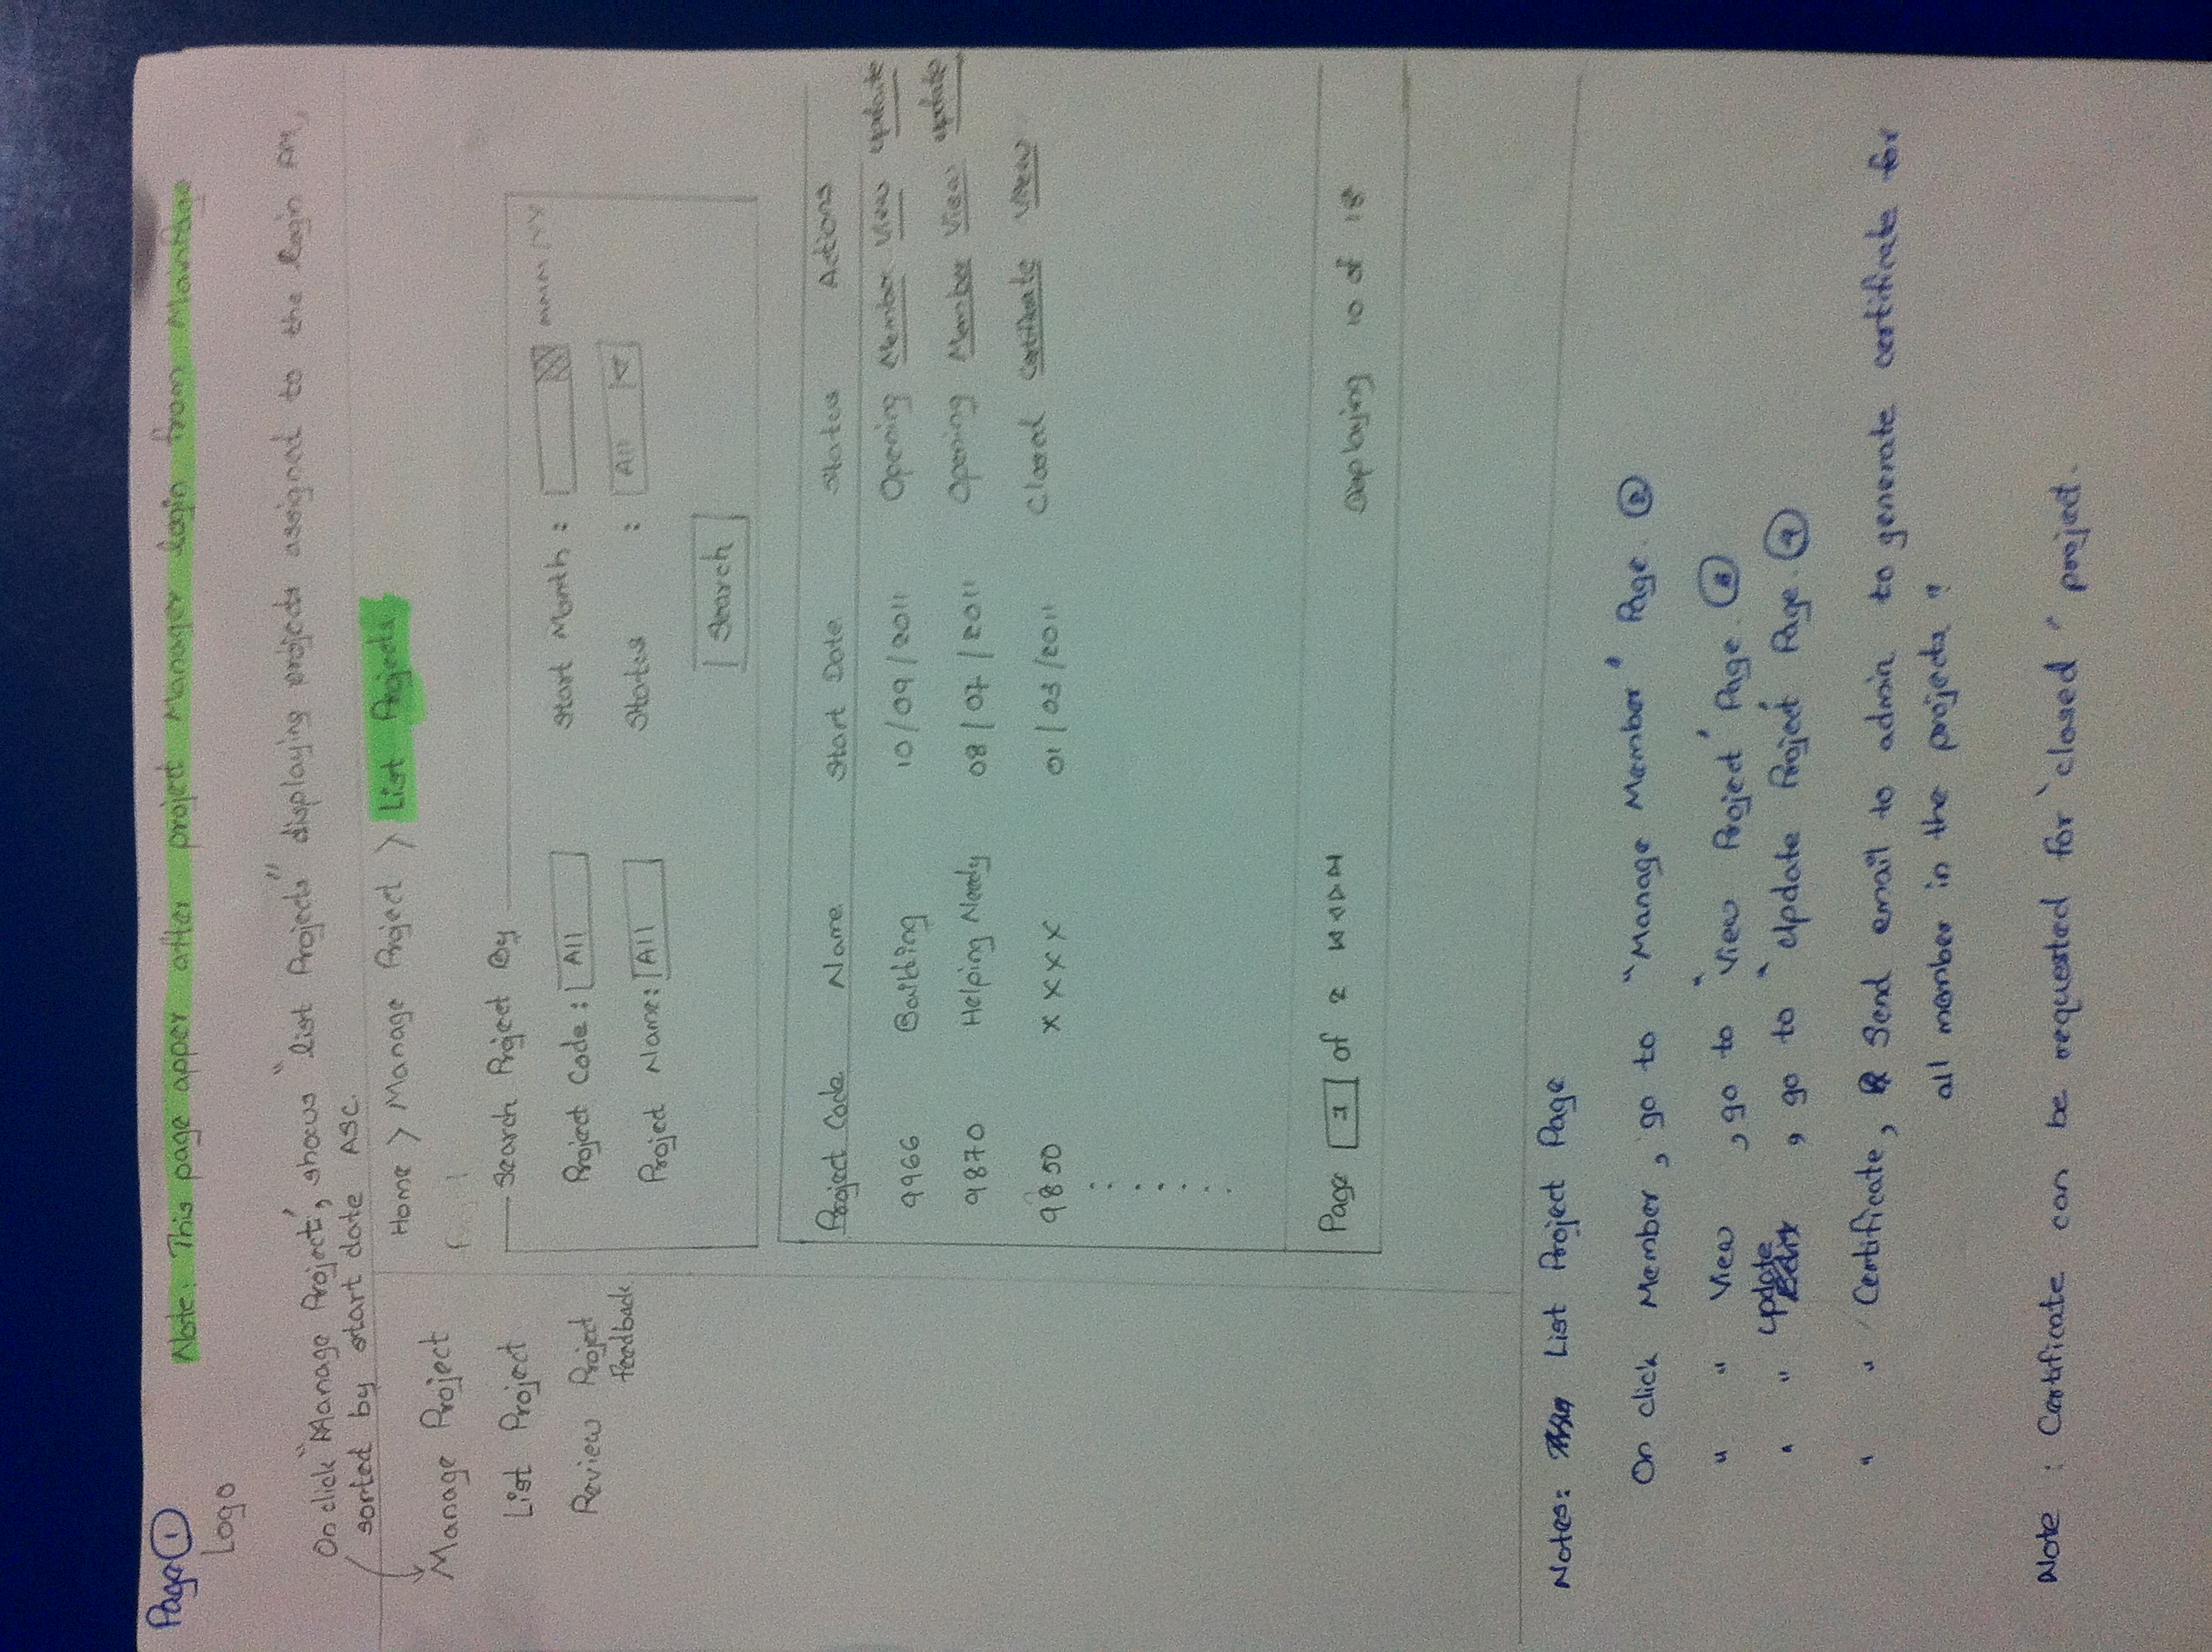 Page 1
Note: This page apper after project Manager login from
Logo
On click "Manage Project", shows "list Projects" displaying projects assigned to the login PM,
sorted by start date ASC.
Home > Manage Project > List Projects
Manage Project
List Project
Review Project
feedback
Search Project By
Project Code : All
Start Month : MMM/YY
Project Name: All
Status : All
Search
Project Code Name Start Date Status Actions
9966 Building 10/09/2011 Opening Member View update
9870 Helping Needy 08/07/2011 Opening Member View update
9850 xxxx 01/03/2011 Closed Certificate View
Page 1 of 2
Displaying 10 of 18
Notes: List Project Page
On click Member, go to "Manage Member" Page. 2
" " View , go to "View Project" Page.
" " update , go to "Update Project" Page.
" " Certificate, Send email to admin to generate certificate for
all member in the projects ?
Note : Certificate can be requested for 'closed' project.